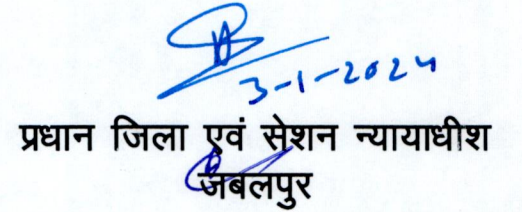 3-1-2024
प्रधान जिला एवं सेशन न्यायाधीश
जबलपुर